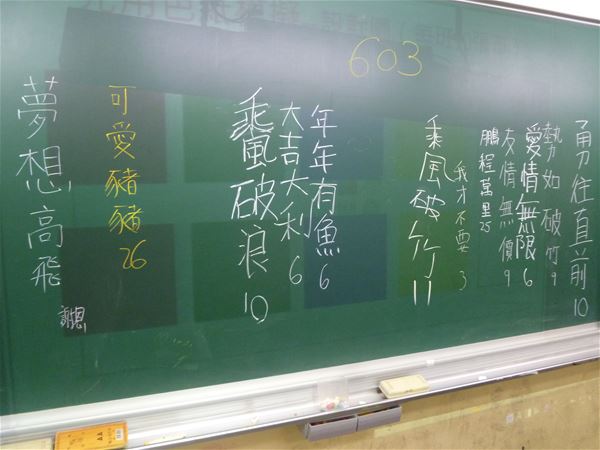 603
勇往直前 10
勢如破竹 9
愛情無限 6
友情無價 9
鵬程萬里 25
我才不要 3
乘風破竹 11
年年有魚 6
大吉大利 6
乘風破浪 10
可愛豬豬 26
夢想高飛